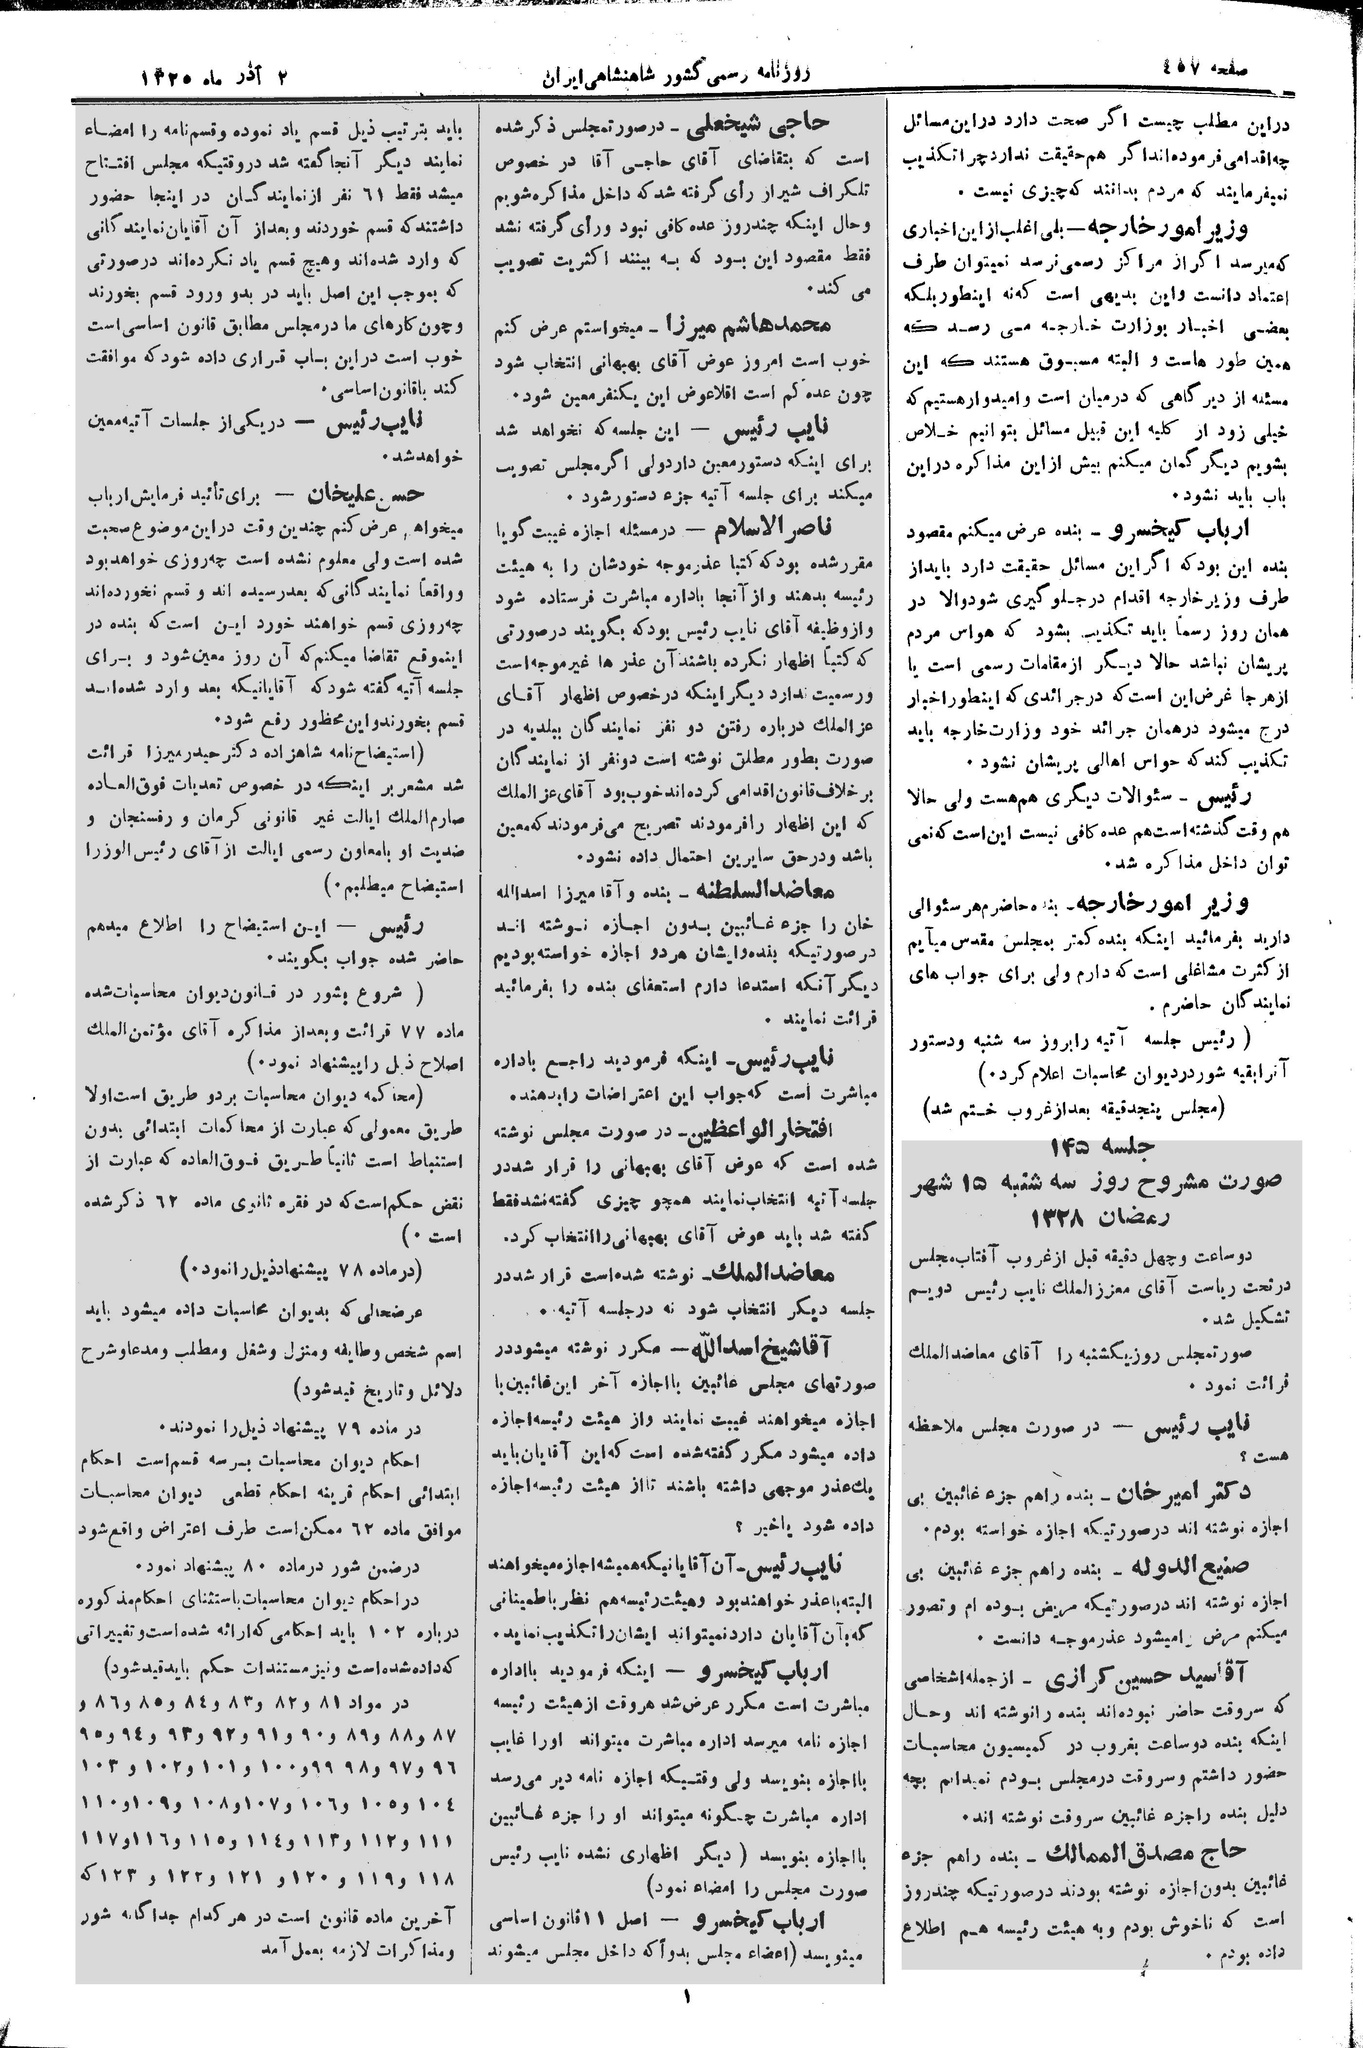 صفحه ۴۵۷
روزنامه رسمی کشور شاهنشاهی ایران
۲ آذر ماه ۱۳۲۵
در این مطلب چیست اگر صحت دارد در این مسائل
چه اقدامی فرموده‌اند اگر هم حقیقت ندارد چرا تکذیب
نمیفرمایند که مردم بدانند که چیزی نیست .
وزیر امور خارجه – بلی اغلب از این اخباری
که میرسد اگر از مراکز رسمی نرسد نمیتوان طرف
اعتماد دانست و این بدیهی است که نه اینطور بلکه
بعضی اخبار بوزارت خارجه می رسد که
همین طور هاست و البته مسبوق هستند که این
مسئله از دیر گاهی که در میان است و امیدوار هستیم که
خیلی زود از کلیه این قبیل مسائل بتوانیم خلاص
بشویم دیگر گمان میکنم بیش از این مذاکره در این
باب باید نشود .
ارباب کیخسرو – بنده عرض میکنم مقصود
بنده این بود که اگر این مسائل حقیقت دارد باید از
طرف وزیر خارجه اقدام در جلوگیری شود والا در
همان روز رسماً باید تکذیب بشود که هواس مردم
پریشان نباشد حالا دیگر از مقامات رسمی است یا
از هر جا غرض این است که در جرائدی که اینطور اخبار
درج میشود در همان جرائد خود وزارت خارجه باید
تکذیب کند که حواس اهالی پریشان نشود .
رئیس – سئوالات دیگری هم هست ولی حالا
هم وقت گذشته است هم عده کافی نیست این است که نمی
توان داخل مذاکره شد .
وزیر امور خارجه – بنده حاضرم هر سئوالی
دارید بفرمائید اینکه بنده کمتر بمجلس مقدس میآیم
از کثرت مشاغلی است که دارم ولی برای جواب های
نمایندگان حاضرم .
( رئیس جلسه آتیه را بروز سه شنبه و دستور
آنرا بقیه شور در دیوان محاسبات اعلام کرد .)
(مجلس پنجدقیقه بعد از غروب ختم شد)
جلسه ۱۴۵
صورت مشروح روز سه شنبه ۱۵ شهر
رمضان ۱۳۲۸
دو ساعت و چهل دقیقه قبل از غروب آفتاب مجلس
در تحت ریاست آقای معزز الملك نایب رئیس دویم
تشکیل شد .
صورتمجلس روز یکشنبه را آقای معاضد الملك
قرائت نمود .
نایب رئیس – در صورت مجلس ملاحظه
هست ؟
دکتر امیر خان – بنده راهم جزء غائبین بی
اجازه نوشته اند در صورتیکه اجازه خواسته بودم .
صنیع الدوله – بنده راهم جزء غائبین بی
اجازه نوشته اند در صورتیکه مریض بوده ام و تصور
میکنم مرض را میشود عذر موجه دانست .
آقا سید حسین کزازی – از جمله اشخاصی
که سروقت حاضر نبوده‌اند بنده را نوشته اند و حال
اینکه بنده دو ساعت بغروب در کمیسیون محاسبات
حضور داشتم و سروقت در مجلس بودم نمیدانم بچه
دلیل بنده را جزء غائبین سروقت نوشته اند .
حاج مصدق الممالك – بنده راهم جزء
غائبین بدون اجازه نوشته بودند در صورتیکه چند روز
است که ناخوش بودم و به هیئت رئیسه هم اطلاع
داده بودم .
حاجی شیخعلی – در صورتمجلس ذکر شده
است که بتقاضای آقای حاجی آقا در خصوص
تلگراف شیراز رأی گرفته شد که داخل مذاکره شویم
و حال اینکه چند روز عده کافی نبود و رأی گرفته نشد
فقط مقصود این بود که به بینند اکثریت تصویب
می کند .
محمد هاشم میرزا – میخواستم عرض کنم
خوب است امروز عوض آقای بهبهانی انتخاب شود
چون عده کم است اقلا عوض این یکنفر معین شود .
نایب رئیس – این جلسه که نخواهد شد
برای اینکه دستور معین دارد ولی اگر مجلس تصویب
میکند برای جلسه آتیه جزء دستور شود .
ناصر الاسلام – در مسئله اجازه غیبت گویا
مقرر شده بود که کتبا عذر موجه خودشان را به هیئت
رئیسه بدهند و از آنجا باداره مباشرت فرستاده شود
و از وظیفه آقای نایب رئیس بود که بگویند در صورتی
که کتباً اظهار نکرده باشند آن عذر ها غیر موجه است
و رسمیت ندارد دیگر اینکه در خصوص اظهار آقای
عز الملك درباره رفتن دو نفر نمایندگان ببلدیه در
صورت بطور مطلق نوشته است دو نفر از نمایندگان
بر خلاف قانون اقدامی کرده‌اند خوب بود آقای عز الملك
که این اظهار را فرمودند تصریح می فرمودند که معین
باشد و در حق سایرین احتمال داده نشود .
معاضد السلطنه – بنده و آقا میرزا اسدالله
خان را جزء غائبین بدون اجازه نوشته اند
در صورتیکه بنده و ایشان هر دو اجازه خواسته بودیم
دیگر آنکه استدعا دارم استعفای بنده را بفرمائید
قرائت نمایند .
نایب رئیس – اینکه فرمودید راجع باداره
مباشرت است که جواب این اعتراضات را بدهند .
افتخار الواعظین – در صورت مجلس نوشته
شده است که عوض آقای بهبهانی را قرار شد در
جلسه آتیه انتخاب نمایند همچو چیزی گفته نشد فقط
گفته شد باید عوض آقای بهبهانی را انتخاب کرد .
معاضد الملك – نوشته شده است قرار شد در
جلسه دیگر انتخاب شود نه در جلسه آتیه .
آقا شیخ اسد الله – مکرر نوشته میشود در
صورتهای مجلس غائبین با اجازه آخر این غائبین با
اجازه میخواهند غیبت نمایند و از هیئت رئیسه اجازه
داده میشود مکرر گفته شده است که این آقایان باید
یك عذر موجهی داشته باشند تا از هیئت رئیسه اجازه
داده شود یا خیر ؟
نایب رئیس – آن آقایانیکه همیشه اجازه میخواهند
البته با عذر خواهند بود و هیئت رئیسه هم نظر باطمینانی
که بآن آقایان دارد نمیتواند ایشان را تکذیب نماید .
ارباب کیخسرو – اینکه فرمودید با اداره
مباشرت است مکرر عرض شد هر وقت از هیئت رئیسه
اجازه نامه میرسد اداره مباشرت میتواند او را غایب
با اجازه بنویسد ولی وقتیکه اجازه نامه دیر می رسد
اداره مباشرت چگونه میتواند او را جزء غائبین
با اجازه بنویسد ( دیگر اظهاری نشده نایب رئیس
صورت مجلس را امضاء نمود)
ارباب کیخسرو – اصل ۱۱ قانون اساسی
مینویسد (اعضاء مجلس بدواً که داخل مجلس میشوند
باید بترتیب ذیل قسم یاد نموده و قسم نامه را امضاء
نمایند دیگر آنجا گفته شد در وقتیکه مجلس افتتاح
میشد فقط ۶۱ نفر از نمایندگان در اینجا حضور
داشتند که قسم خوردند و بعد از آن آقایان نمایندگانی
که وارد شده‌اند و هیچ قسم یاد نکرده‌اند در صورتی
که بموجب این اصل باید در بدو ورود قسم بخورند
و چون کارهای ما در مجلس مطابق قانون اساسی است
خوب است در این باب قراری داده شود که موافقت
کند با قانون اساسی .
نایب رئیس – در یکی از جلسات آتیه معین
خواهد شد .
حسن علیخان – برای تأئید فرمایش ارباب
میخواهم عرض کنم چندین وقت در این موضوع صحبت
شده است ولی معلوم نشده است چه روزی خواهد بود
و واقعاً نمایندگانی که بعد رسیده اند و قسم نخورده‌اند
چه روزی قسم خواهند خورد این است که بنده در
اینموقع تقاضا میکنم که آن روز معین شود و برای
جلسه آتیه گفته شود که آقایانیکه بعد وارد شده‌اند
قسم بخورند و این محظور رفع شود .
(استیضاح نامه شاهزاده دکتر حیدر میرزا قرائت
شد مشعر بر اینکه در خصوص تعدیات فوق العاده
صارم الملك ایالت غیر قانونی کرمان و رفسنجان و
ضدیت او با معاون رسمی ایالت از آقای رئیس الوزرا
استیضاح میطلبم .)
رئیس – این استیضاح را اطلاع میدهم
حاضر شده جواب بگویند .
( شروع بشور در قانون دیوان محاسبات شده
ماده ۷۷ قرائت و بعد از مذاکره آقای مؤتمن الملك
اصلاح ذیل را پیشنهاد نمود .)
(محاکمه دیوان محاسبات بر دو طریق است اولا
طریق معمولی که عبارت از محاکمات ابتدائی بدون
استنباط است ثانیاً طریق فوق العاده که عبارت از
نقض حکم است که در فقره ثانیی ماده ۶۲ ذکر شده
است .)
(در ماده ۷۸ پیشنهاد ذیل را نمود .)
عرضحالی که بدیوان محاسبات داده میشود باید
اسم شخص و طایفه و منزل و شغل و مطلب و مدعا و شرح
دلائل و تاریخ قید شود)
در ماده ۷۹ پیشنهاد ذیل را نمودند .
احکام دیوان محاسبات بر سه قسم است احکام
ابتدائی احکام قرینه احکام قطعی دیوان محاسبات
موافق ماده ۶۲ ممکن است طرف اعتراض واقع شود
در ضمن شور در ماده ۸۰ پیشنهاد نمود .
در احکام دیوان محاسبات باستثنای احکام مذکوره
درباره ۱۰۲ باید احکامی که ارائه شده است و تغییراتی
که داده شده است و نیز مستندات حکم باید قید شود)
در مواد ۸۱ و ۸۲ و ۸۳ و ۸۴ و ۸۵ و ۸۶ و
۸۷ و ۸۸ و ۸۹ و ۹۰ و ۹۱ و ۹۲ و ۹۳ و ۹۴ و ۹۵
و ۹۶ و ۹۷ و ۹۸ و ۹۹ و ۱۰۰ و ۱۰۱ و ۱۰۲ و ۱۰۳
۱۰۴ و ۱۰۵ و ۱۰۶ و ۱۰۷ و ۱۰۸ و ۱۰۹ و ۱۱۰
۱۱۱ و ۱۱۲ و ۱۱۳ و ۱۱۴ و ۱۱۵ و ۱۱۶ و ۱۱۷
۱۱۸ و ۱۱۹ و ۱۲۰ و ۱۲۱ و ۱۲۲ و ۱۲۳ که
آخرین ماده قانون است در هر کدام جداگانه شور
و مذاکرات لازمه بعمل آمد
۱